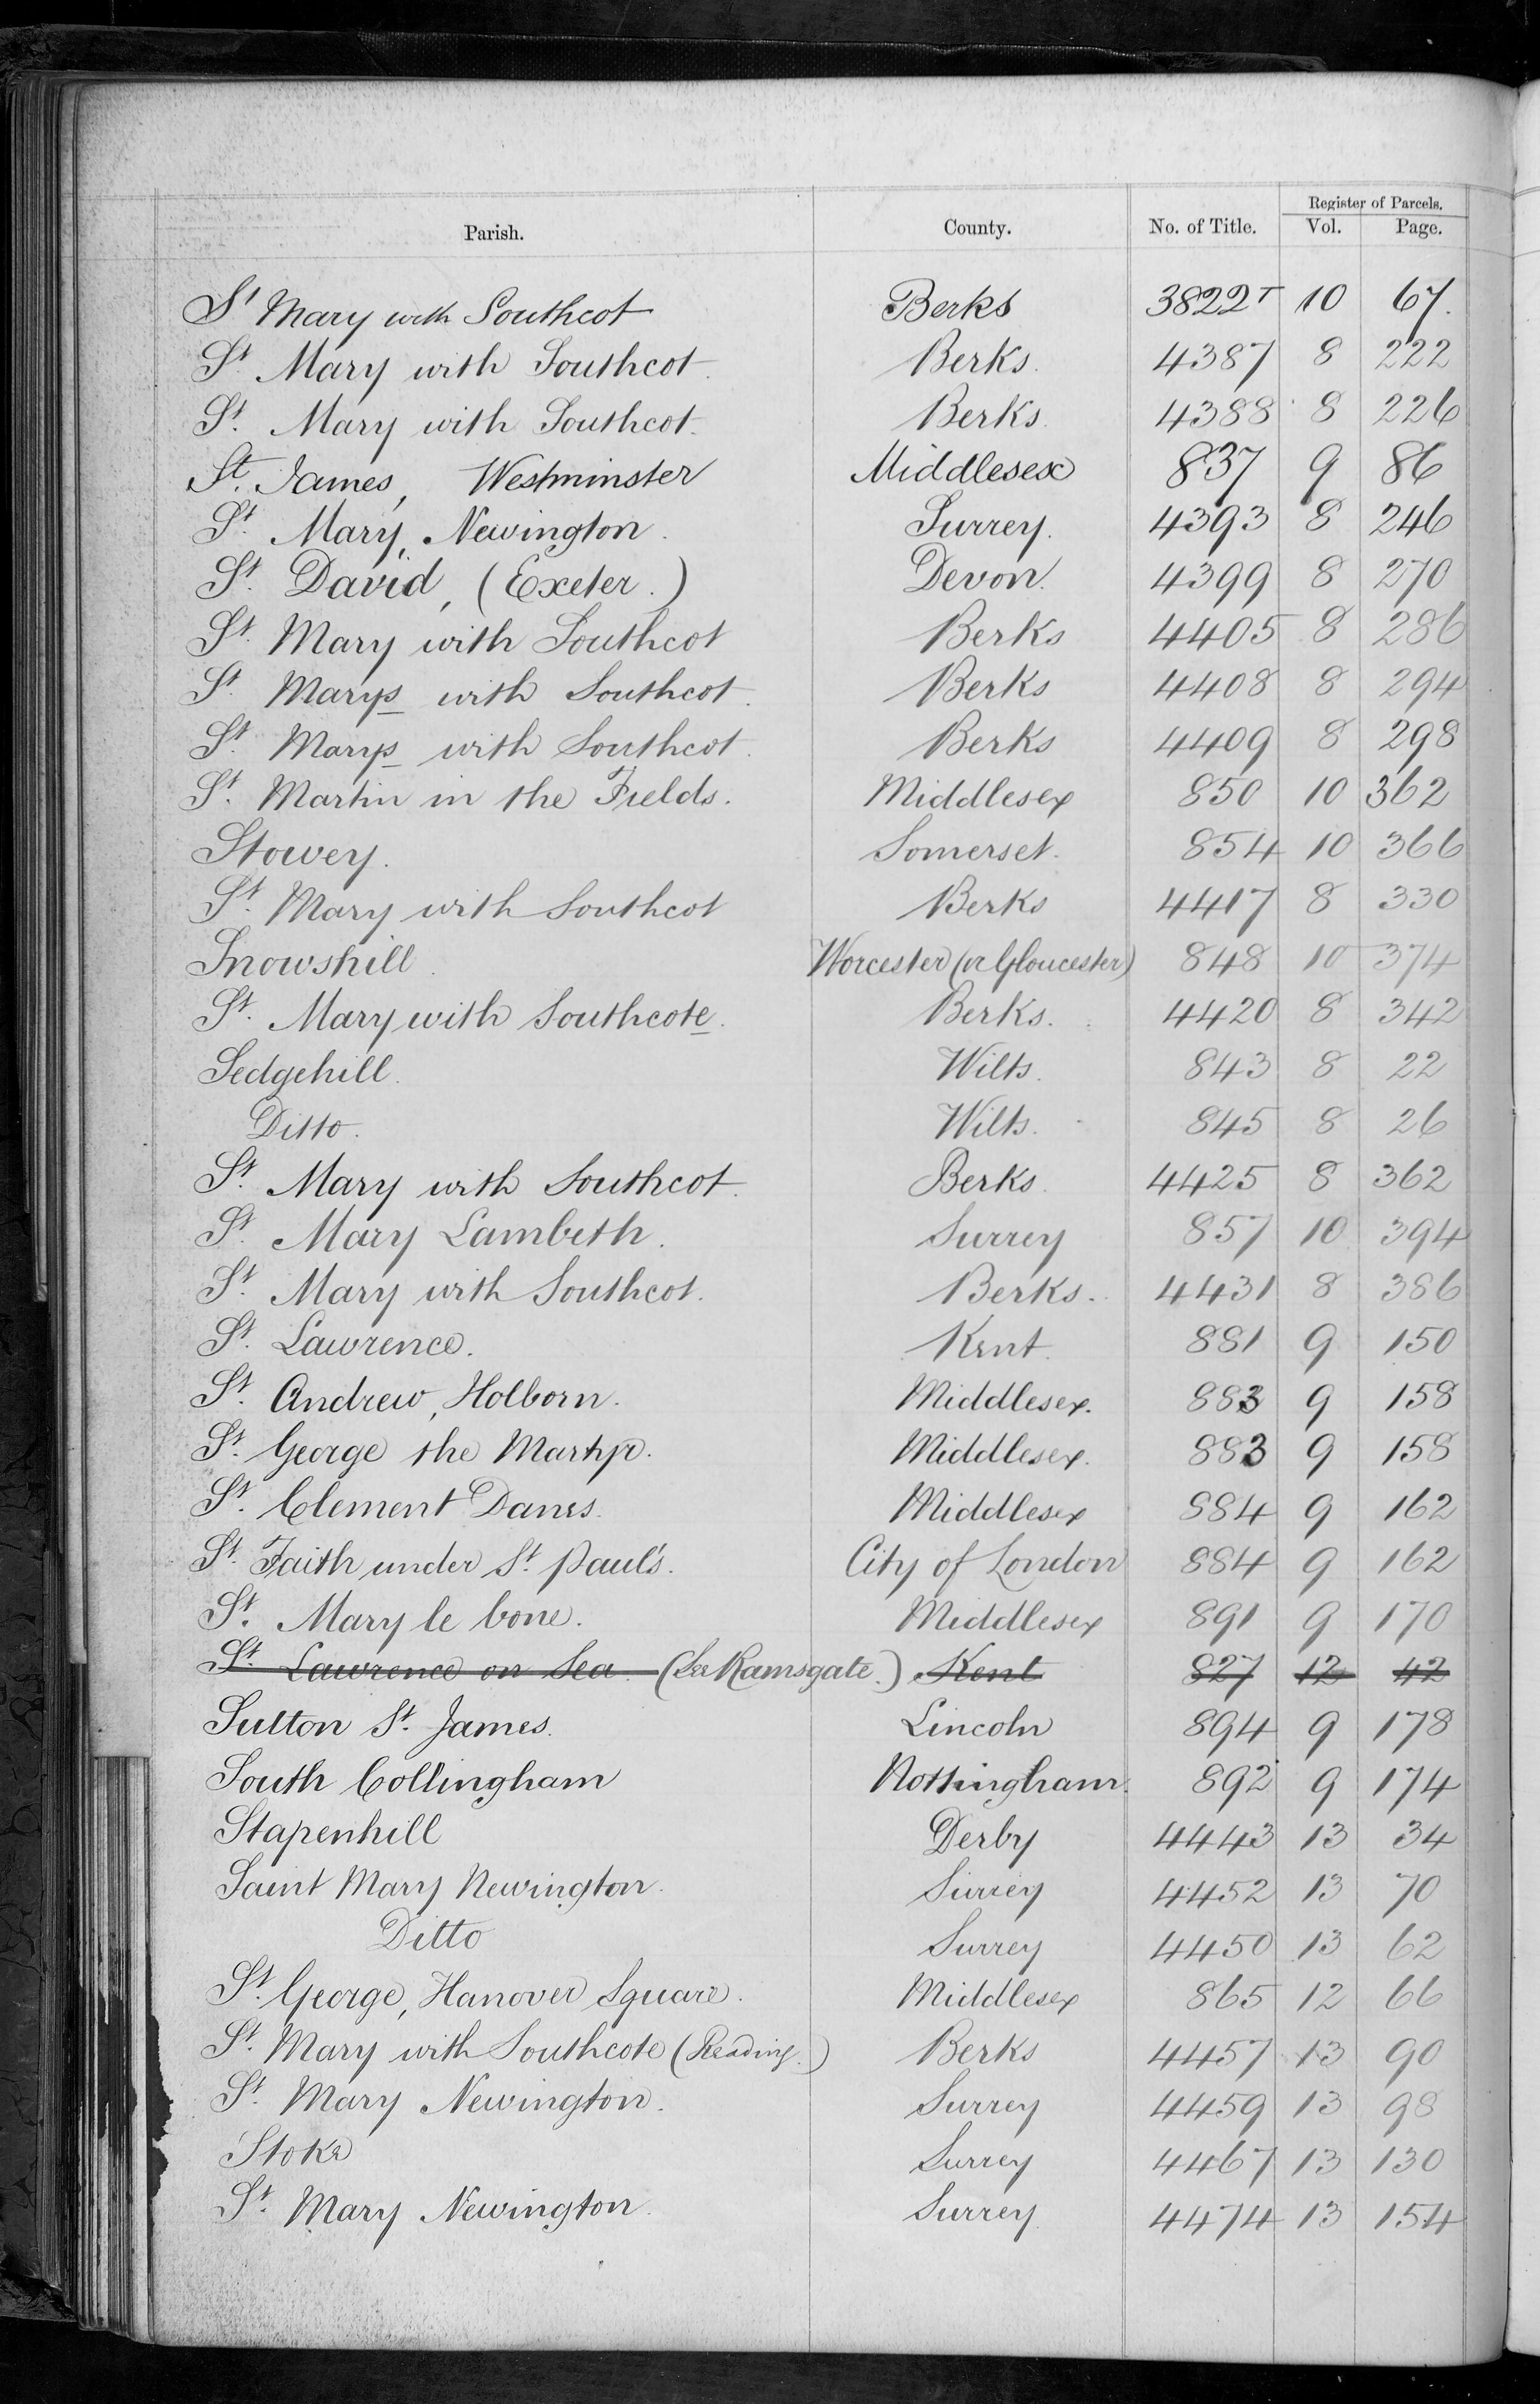 Register of Parcels.
Parish. County. No. of Title. Vol. Page.
St Mary with Southcot Berks 3822 T 10 67.
St. Mary with Southcot. Berks. 4387 8 222
St. Mary with Southcot. Berks. 4388 8 226
St. James, Westminster Middlesex 837 9 86
St. Mary, Newington. Surrey. 4393 8 246
St. David, (Exeter.) Devon. 4399 8 270
St. Mary with Southcot Berks 4405 8 286
St. Marys with Southcot. Berks 4408 8 294
St. Marys with Southcot. Berks 4409 8 298
St. Martin in the Fields. Middlesex 850 10 362
Stowey. Somerset. 854 10 366
St. Mary with Southcot Berks 4417 8 330
Snowshill. Worcester (or Gloucester) 848 10 374
St. Mary with Southcote. Berks. 4420 8 342
Sedgehill. Wilts. 843 8 22
Ditto. Wilts. 845 8 26
St. Mary with Southcot. Berks. 4425 8 362
St. Mary Lambeth. Surrey 857 10 394
St. Mary with Southcot. Berks. 4431 8 386
St. Lawrence. Kent. 881 9 150
St. Andrew, Holborn. Middlesex. 883 9 158
St. George the Martyr. Middlesex. 883 9 158
St. Clement Danes. Middlesex 884 9 162
St. Faith under St. Paul's. City of London 884 9 162
St. Mary le bone. Middlesex 891 9 170
St. Lawrence on Sea (See Ramsgate.) Kent 827 12 42
Sutton St. James. Lincoln 894 9 178
South Collingham Nottingham. 892 9 174
Stapenhill Derby 4443 13 34
Saint Mary Newington. Surrey 4452 13 70
Ditto Surrey 4450 13 62
St. George, Hanover Square. Middlesex 865 12 66
St. Mary with Southcote (Reading.) Berks 4457 13 90
St. Mary Newington. Surrey 4459 13 98
Stoke Surrey 4467 13 130
St. Mary Newington. Surrey. 4474 13 154